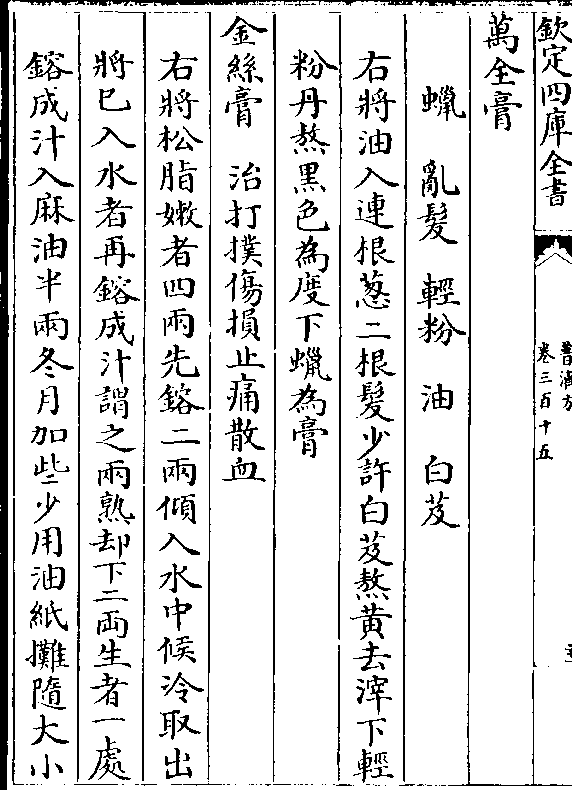 欽定四庫全書
普濟方
卷三百十五
萬全膏
蠟 亂髮 輕粉 油 白芨
右將油入連根蔥二根髮少許白芨熬黃去滓下輕
粉丹熬黑色為度下蠟為膏
金絲膏 治打撲傷損止痛散血
右將松脂嫩者四兩先鎔二兩傾入水中候冷取出
將已入水者再鎔成汁謂之兩熟却下二兩生者一處
鎔成汁入麻油半兩冬月加些少用油紙攤隨大小